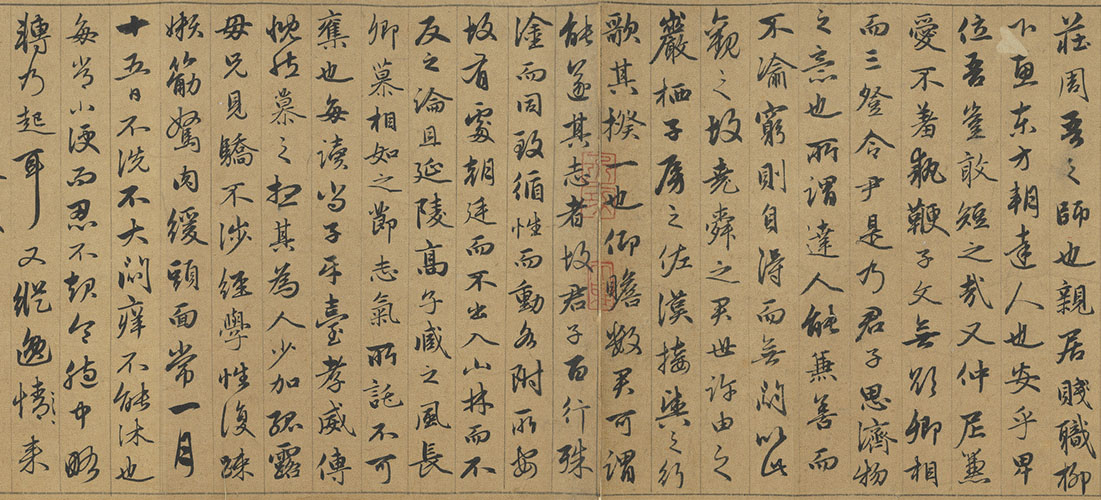 莊周吾之師也親居賤職柳
下惠東方朔達人也安乎卑
位吾豈敢短之哉又仲尼兼
愛不羞執鞭子文無欲卿相
而三登令尹是乃君子思濟物
之意也所謂達人能兼善而
不渝窮則自得而無悶以此
觀之故堯舜之君世許由之
巖栖子房之佐漢接輿之行
歌其揆一也仰瞻數君可謂
能遂其志者故君子百行殊
塗而同致循性而動各附所安
故有處朝廷而不出入山林而不
反之論且延陵高子臧之風長
卿慕相如之節志氣所託不可
奪也每讀尚子平臺孝威傳
慨然慕之想其為人少加孤露
母兄見驕不涉經學性復疎
嬾筋駑肉緩頭面常一月
十五日不洗不大悶癢不能沐也
每常小便而忍不起令胞中略
轉乃起耳又縱逸情來